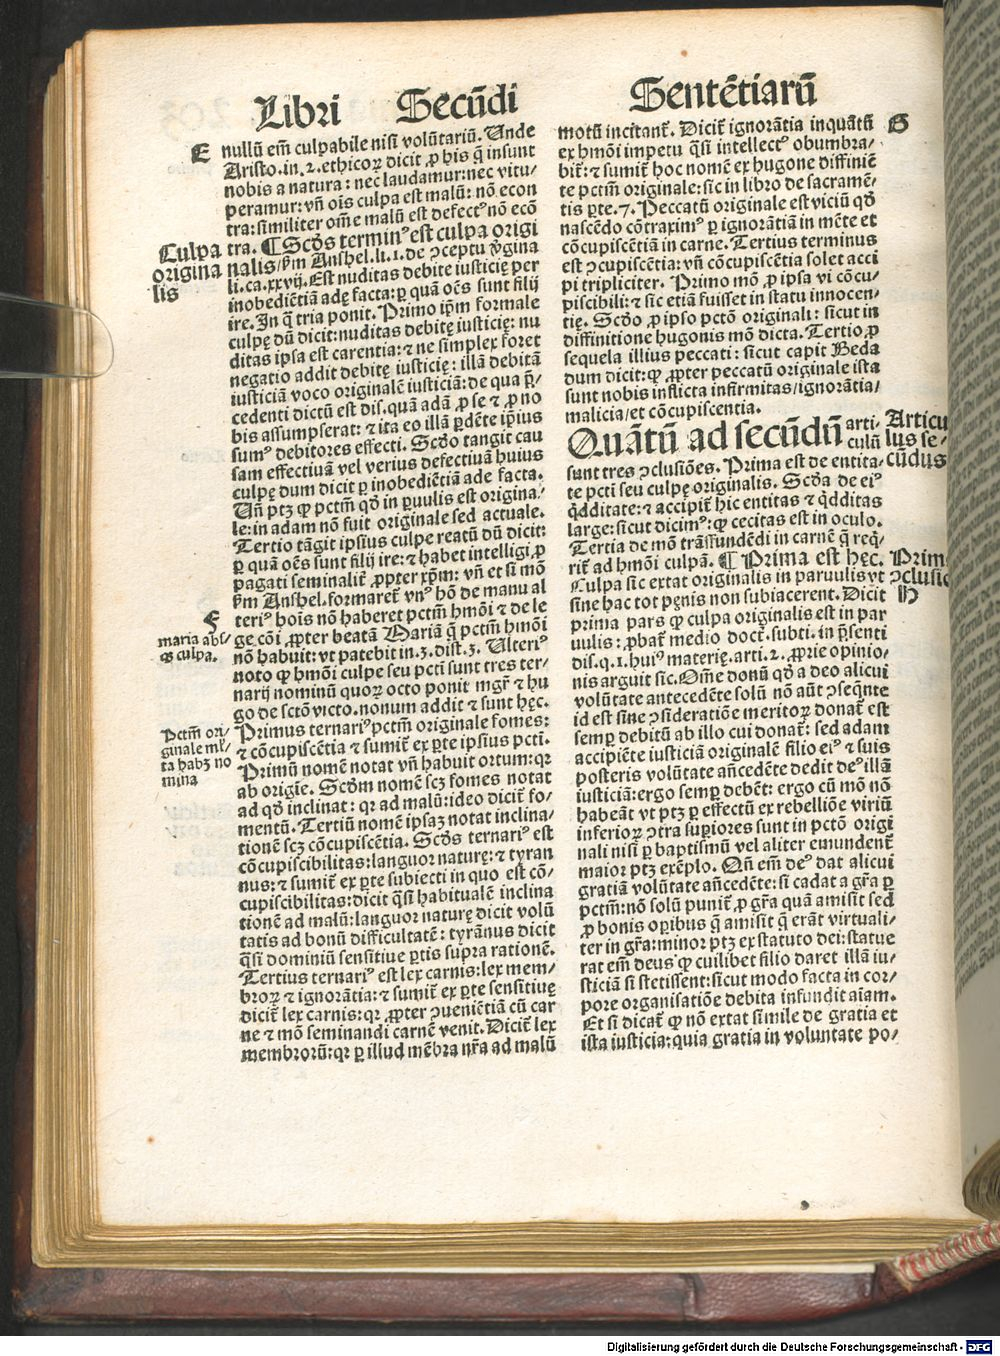 Libri Secūdi Sentētiarū
E
nullū em̄ culpabile nisi volūtariū. Unde
Aristo. in. 2. ethicoꝝ dicit ꝓ his q̄ insunt
nobis a natura: nec laudamur: nec vitu/
peramur: vn̄ oīs culpa est malū: nō econ
tra: similiter om̄e malū est defectꝰ nō ecō
tra. ¶ Scd̓s terminꝰ est culpa origi
nalis/ẜm Anshel. li. 1. de ↄceptu v̓gina
li. ca. xxvij. Est nuditas debite iusticię per
inobediētiā adę facta: ꝑ quā oēs sunt filij
ire. In q̄ tria ponit. Primo ip̄m formale
culpę dū dicit: nuditas debitę iusticię: nu
ditas ipsa est carentia: ⁊ ne simplex foret
negatio addit debitę iusticię: illā debitā
iusticiā voco originalē iusticiā: de qua p̄/
cedenti dictū est dis. quā adā ꝓ se ⁊ ꝓ no
bis assumpserat: ⁊ ita eo illā ꝑdēte ip̄ius
sumꝰ debitores effecti. Scd̓o tangit cau
sam effectiuā vel verius defectiuā huius
culpę dum dicit ꝑ inobediētiā ade facta.
Un̄ ptꝫ ꝙ pctm̄ qd̓ in ꝑuulis est origina/
le: in adam nō fuit originale sed actuale.
Tertio tāgit ipsius culpe reatū dū dicit:
ꝑ quā oēs sunt filij ire: ⁊ habet intelligi ꝓ
pagati seminalit̄ ꝓpter xp̄m: vn̄ et si mō
ẜm Anshel. formaret̄ vnꝰ hō de manu al
teriꝰ hoīs nō haberet pctm̄ hmōi ⁊ de le
ge cōi ꝓpter beatā Mariā q̄ pctm̄ hmōi
nō habuit: vt patebit in. 3. dist. 3. Ulteriꝰ
noto ꝙ hmōi culpe seu pcti sunt tres ter/
narij nominū quoꝝ octo ponit mgr̄ ⁊ hu
go de sctō victo. nonum addit ⁊ sunt hęc.
Primus ternariꝰ pctm̄ originale fomes:
⁊ cōcupiscētia ⁊ sumit̄ ex ꝑte ipsius pcti.
Primū nomē notat vn̄ habuit ortum: qꝛ
ab origīe. Scd̓m nomē scꝫ fomes notat
ad qd̓ inclinat: qꝛ ad malū: ideo dicit̄ fo/
mentū. Tertiū nomē ipsaꝫ notat inclina/
tionē scꝫ cōcupiscētia. Scd̓s ternariꝰ est
cōcupiscibilitas: languor naturę: ⁊ tyran
nus: ⁊ sumit̄ ex ꝑte subiecti in quo est cō/
cupiscibilitas: dicit q̄si habitualē inclina
tionē ad malū: languor naturę dicit volū
tatis ad bonū difficultatē: tyrānus dicit
q̄si dominiū sensitiue ꝑtis supra rationē.
Tertius ternariꝰ est lex carnis: lex mem/
broꝝ ⁊ ignorātia: ⁊ sumit̄ ex ꝑte sensitiuę
dicit̄ lex carnis: qꝛ ꝓpter ↄueniētiā cū car
ne ⁊ mō seminandi carnē venit. Dicit̄ lex
membrorū: qꝛ ꝑ illud mēbra nr̄a ad malū
Culpa
origina
lis
F
maria abs/
qꝫ culpa.
Pctm̄ ori/
ginale ml̓/
ta habꝫ no
mina
motū incitant̄. Dicit̄ ignorātia inquātū
ex hmōi impetu q̄si intellectꝰ obumbra/
bit̄: ⁊ sumit̄ hoc nomē ex hugone diffiniē
te pctm̄ originale: sic in libro de sacramē/
tis ꝑte. 7. Peccatū originale est viciū qd̓
nascēdo cōtraximꝰ ꝑ ignorātiā in mēte et
cōcupiscētiā in carne. Tertius terminus
est ↄcupiscētia: vn̄ cōcupiscētia solet acci
pi tripliciter. Primo mō ꝓ ipsa vi cōcu/
piscibili: ⁊ sic etiā fuisset in statu innocen/
tię. Scd̓o ꝓ ipso pctō originali: sicut in
diffinitione hugonis mō dicta. Tertio ꝓ
sequela illius peccati: sicut capit Beda
dum dicit: ꝙ ꝓpter peccatū originale ista
sunt nobis inflicta infirmitas/ignorātia/
malicia/et cōcupiscentia.
Quātū ad secūdū arti-
culū
sunt tres ↄclusiōes. Prima est de entita/
te pcti seu culpę originalis. Scd̓a de eiꝰ
q̄dditate: ⁊ accipit̄ hic entitas ⁊ q̄dditas
large: sicut dicimꝰ: ꝙ cecitas est in oculo.
Tertia de mō trāsfundēdi in carnē q̄ req̄/
rit̄ ad hmōi culpā. ¶ Prima est hęc.
Culpa sic extat originalis in paruulis vt
sine hac tot pęnis non subiacerent. Dicit
prima pars ꝙ culpa originalis est in par
uulis: ꝓbat̄ medio doct. subti. in p̄senti
dis. q. 1. huiꝰ materię. arti. 2. ꝓprie opinio/
nis arguit sic. Om̄e donū qd̓ a deo alicui
volūtate antecedēte solū nō aūt ↄseq̄nte
id est sine ↄsideratiōe meritoꝝ donat̄ est
semꝑ debitū ab illo cui donat̄: sed adam
accipiēte iusticiā originalē filio eiꝰ ⁊ suis
posteris volūtate an̄cedēte dedit deꝰ illā
iusticiā: ergo semꝑ debēt: ergo cū mō nō
habeāt vt ptꝫ ꝑ effectū ex rebelliōe viriū
inferioꝝ ↄtra suꝑiores sunt in pctō origi
nali nisi ꝑ baptismū vel aliter emundent̄
maior ptꝫ exēplo. Qn̄ em̄ deꝰ dat alicui
gratiā volūtate an̄cedēte: si cadat a gr̄a ꝑ
pctm̄: nō solū punit̄ ꝓ gr̄a quā amisit sed
ꝓ bonis oꝑibus q̄ amisit q̄ erāt virtuali/
ter in gr̄a: minor ptꝫ ex statuto dei: statue
rat em̄ deus ꝙ cuilibet filio daret illā iu/
sticiā si stetissent: sicut modo facta in cor/
pore organisatiōe debita infundit aīam.
Et si dicat̄ ꝙ nō extat simile de gratia et
ista iusticia: quia gratia in voluntate po/
G
Articu
lus se/
cūdus
Prim
ↄclusio
H
Digitalisierung gefördert durch die Deutsche Forschungsgemeinschaft - DFG